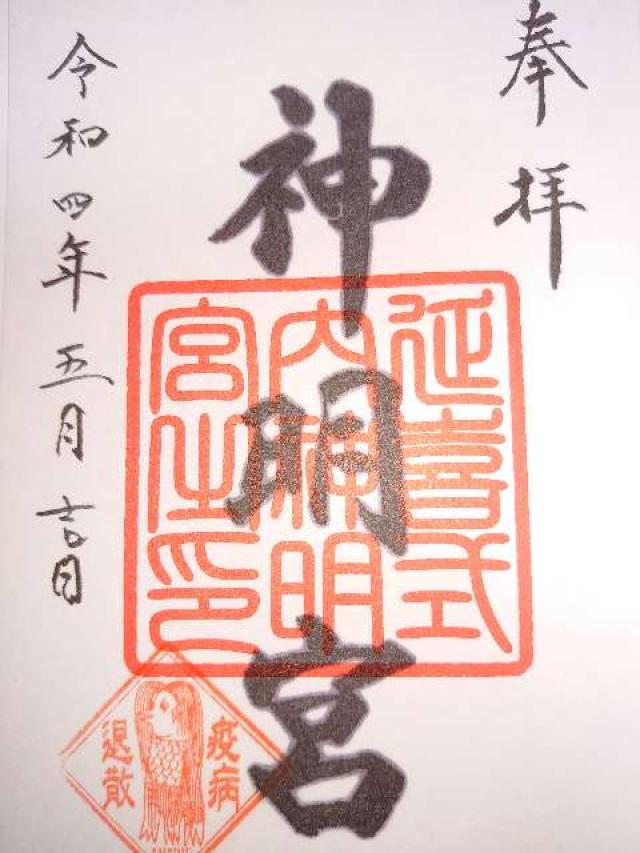 奉拝
神明宮
延喜式
内神明
宮之印
令和四年五月吉日
疫病
退散